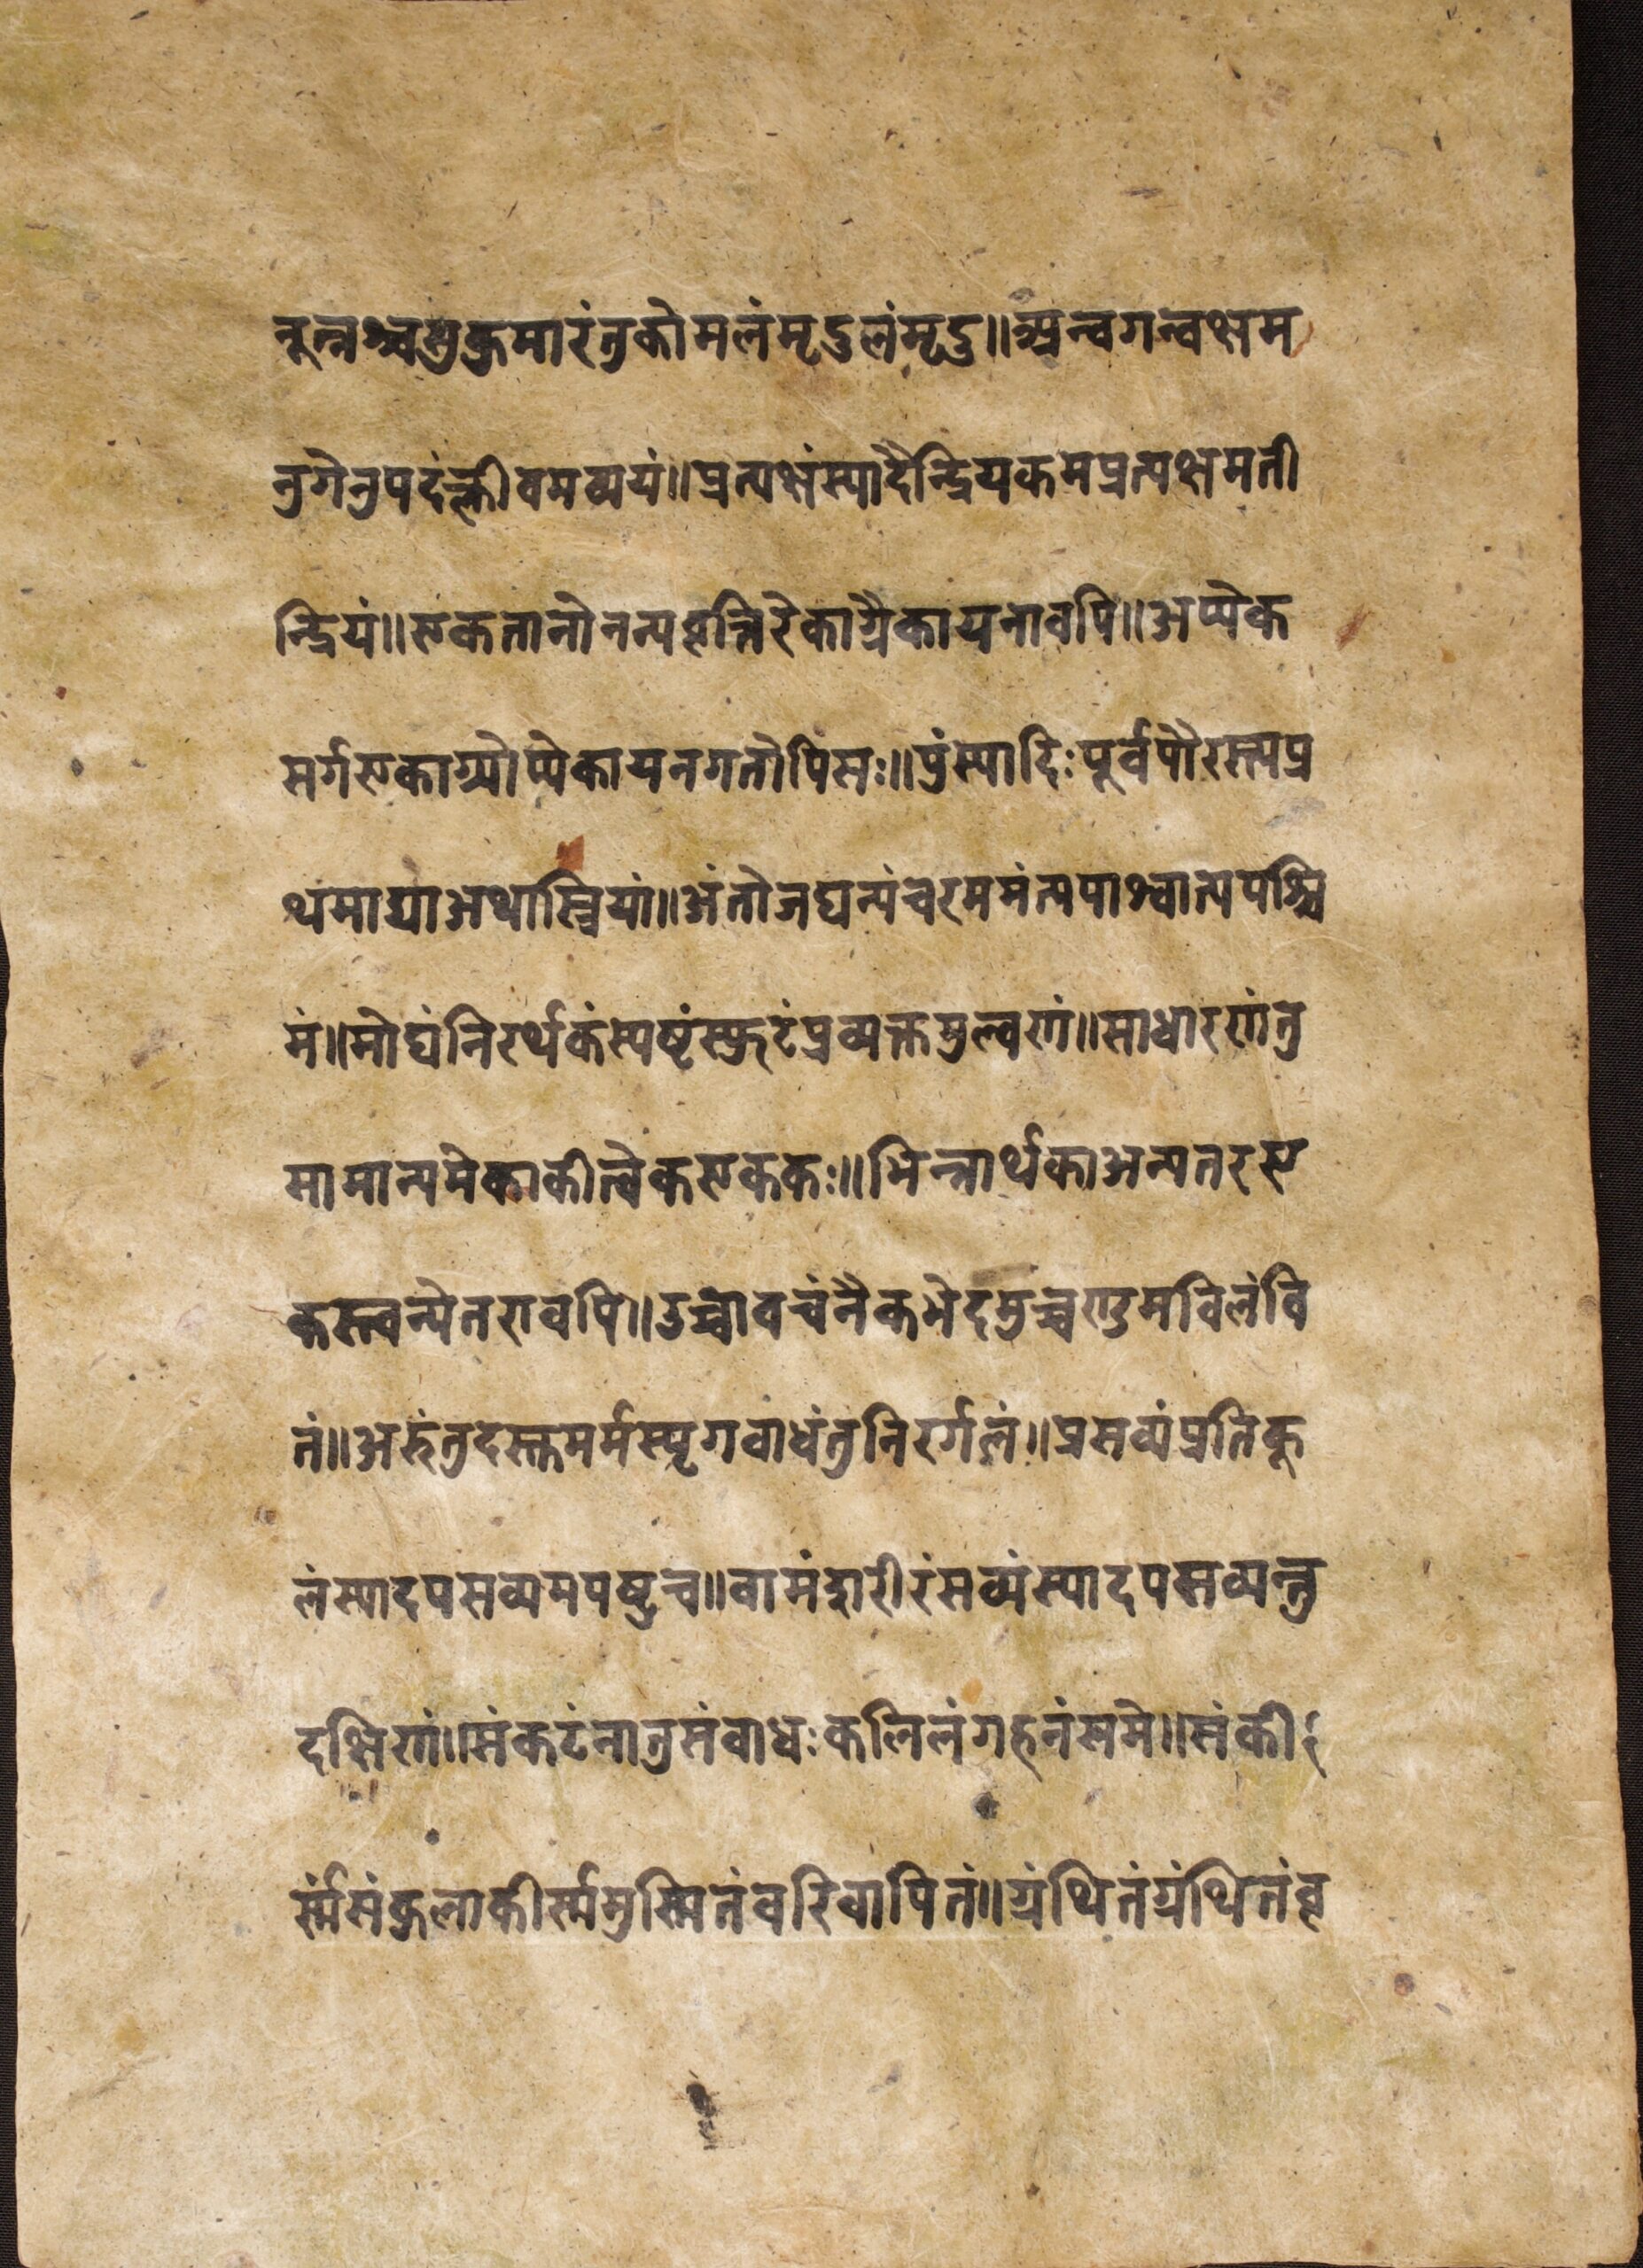 नूत्नश्चसुकुमारंतुकोमलंमृदुलंमृदु॥अन्वगन्वक्षम
नुगेनुपदंक्लीवमव्ययं॥प्रत्यक्षंस्यादैन्द्रियकमप्रत्यक्षमती
न्द्रियं॥एकतानोनन्यवृत्तिरेकाग्रैकायनावपि॥अप्येक
सर्गएकाग्र्योप्येकायनगतोपिसः॥पुंस्यादिःपूर्वपौरस्त्यप्र
थमाद्याअथास्त्रियां॥अंतोजघन्यंचरममंत्यपाश्चात्यपश्चि
मं॥मोघंनिरर्थकंस्पष्टंस्फुटंप्रव्यक्तमुल्वणं॥साधारणंतु
सामान्यमेकाकीत्वेकएककः॥भिन्नार्थकाअन्यतरए
कस्त्वन्येतरावपि॥उच्चावचंनैकभेदमुच्चण्डमविलंवि
तं॥अरुंतुदस्तमर्मस्पृगवाधंतुनिरर्गलं॥प्रसव्यंप्रतिकू
लंस्यादपसव्यमपष्ठुच॥वामंशरीरंसव्यंस्यादपसव्यन्तु
दक्षिणं॥संकटंनातुसंवाधःकलिलंगहनंसमे॥संकी
र्णसंकुलाकीर्णमुस्मितंवरिवापितं॥ग्रंथितंग्रंथितंवृ